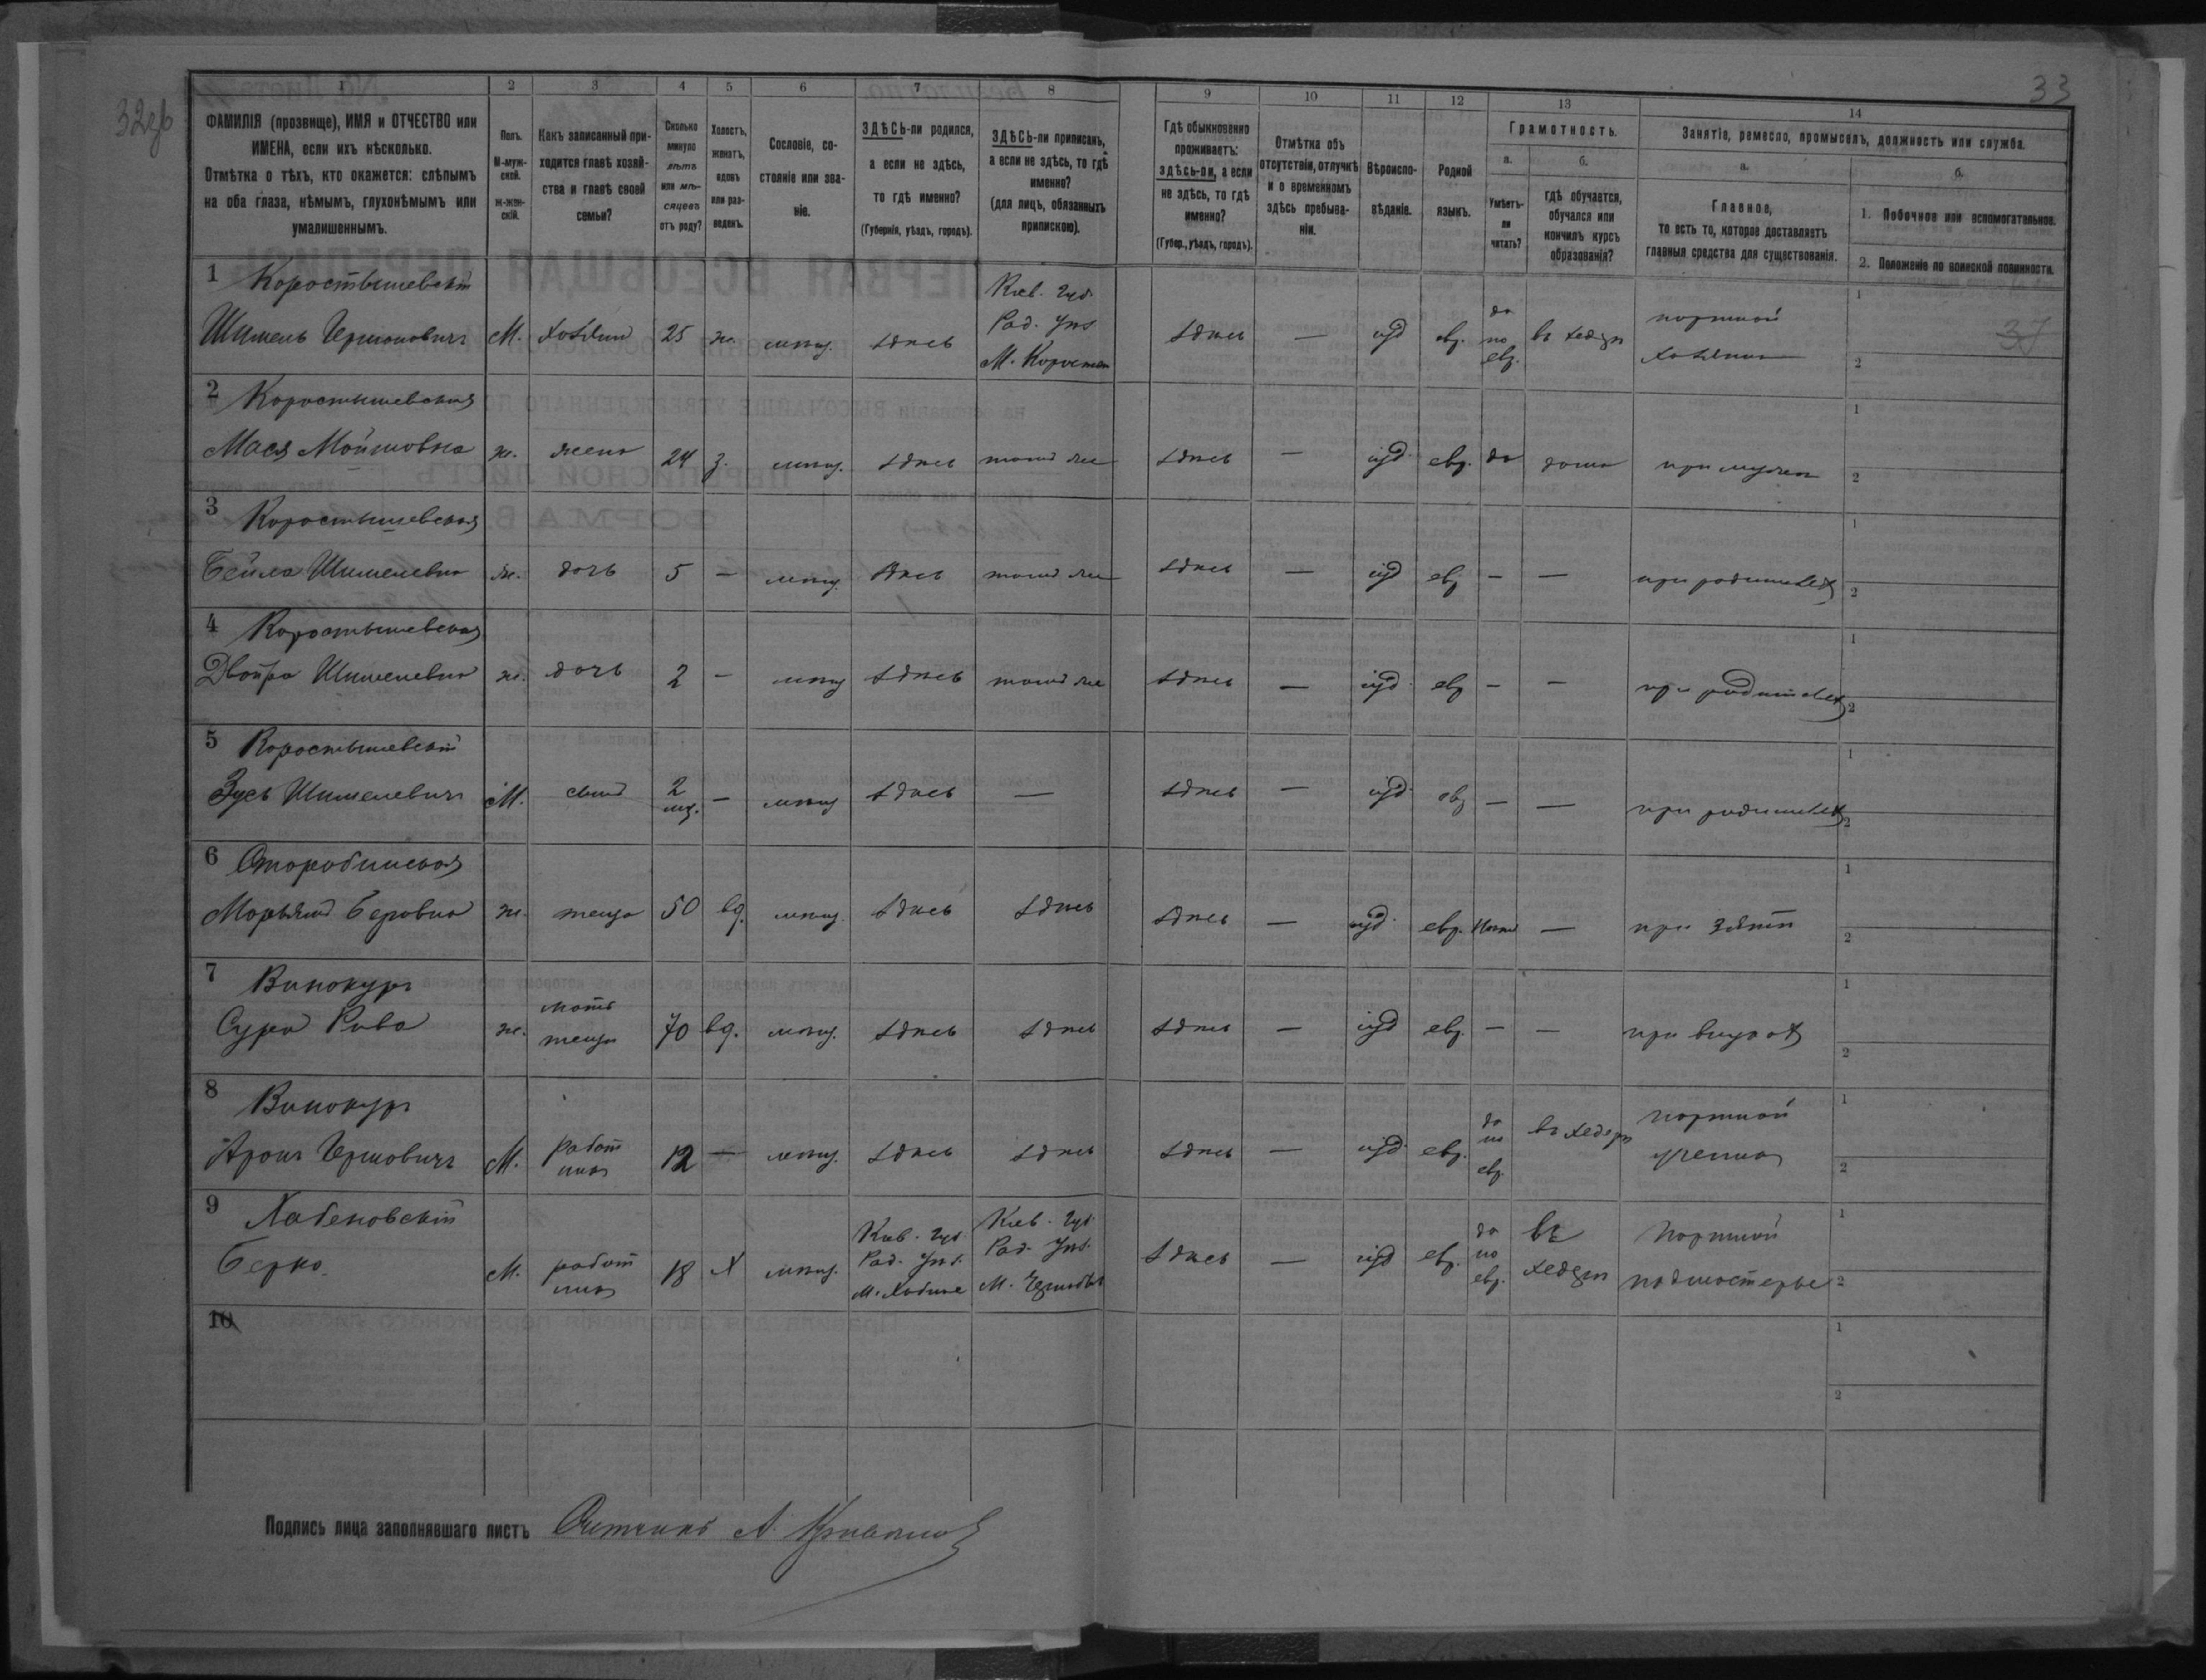 32об
33
1 2 3 4 5 6 7 8 9 10 11 12 13 14
ФАМИЛІЯ (прозвище), ИМЯ и ОТЧЕСТВО или ИМЕНА, если ихъ нѣсколько.
Отмѣтка о тѣхъ, кто окажется: слѣпымъ на оба глаза, нѣмымъ, глухонѣмымъ или умалишеннымъ.
Полъ. М-мужской. Ж-женскій.
Какъ записанный приходится главѣ хозяйства и главѣ своей семьи?
Сколько минуло лѣтъ или мѣсяцевъ отъ роду?
Холостъ, женатъ, вдовъ или разведенъ.
Сословіе, состояніе или званіе.
ЗДѢСЬ-ли родился, а если не здѣсь, то гдѣ именно? (Губернія, уѣздъ, городъ).
ЗДѢСЬ-ли приписанъ, а если не здѣсь, то гдѣ именно? (для лицъ, обязанныхъ припискою).
Гдѣ обыкновенно проживаетъ: здѣсь-ли, а если не здѣсь, то гдѣ именно? (Губер., уѣздъ, городъ).
Отмѣтка объ отсутствіи, отлучкѣ и о временномъ здѣсь пребываніи.
Вѣроисповѣданіе.
Родной языкъ.
Грамотность.
а. Умѣетъ-ли читать?
б. гдѣ обучается, обучался или кончилъ курсъ образованія?
Занятіе, ремесло, промыселъ, должность или служба.
а. Главное, то есть то, которое доставляетъ главныя средства для существованія.
б.
1. Побочное или вспомогательное.
2. Положеніе по воинской повинности.
1 Коростышевскій
Шимель Гершковичъ М. хозяин 25 ж. мѣщ. здѣсь Кіев. губ. Рад. уѣз. М. Коростыш здѣсь — іуд евр. да по евр. въ хедерѣ портной хозяинъ 37
2 Коростышевская
Мася Мошковна ж. жена 24 з. мѣщ. здѣсь тамъ же здѣсь — іуд. евр. да дома при мужѣ
3 Коростышевская
Бейла Шимелевна ж. дочь 5 — мѣщ. здѣсь тамъ же здѣсь — іуд евр — — при родителях
4 Коростышевская
Двойра Шимелевна ж. дочь 2 — мѣщ здѣсь тамъ же здѣсь — іуд. евр — — при родителях
5 Коростышевскій
Зусь Шимелевичъ М. сынъ 2 мѣ. — мѣщ здѣсь — здѣсь — іуд. евр — — при родителях
6 Старобинская
Марьямъ Беровна ж. теща 50 вд. мѣщ. здѣсь здѣсь здѣсь — іуд. евр. нѣтъ — при зятѣ
7 Винокуръ
Сура Рива ж. мать тещи 70 вд. мѣщ. здѣсь здѣсь здѣсь — іуд евр. — — при внуках
8 Винокуръ
Аронъ Гершковичъ М. работник 12 — мѣщ. здѣсь здѣсь здѣсь — іуд. евр. да по евр. въ хедерѣ портной ученик
9 Хабеновскій
Берко М. работник 18 Х мѣщ. Кіев. губ. Рад. уѣз. М. Хабное Кіев. губ. Рад. уѣз. М. здѣсь — іуд евр. да по евр. въ хедерѣ портной подмастерье
10
Подпись лица заполнявшаго листъ Счетчикъ А.